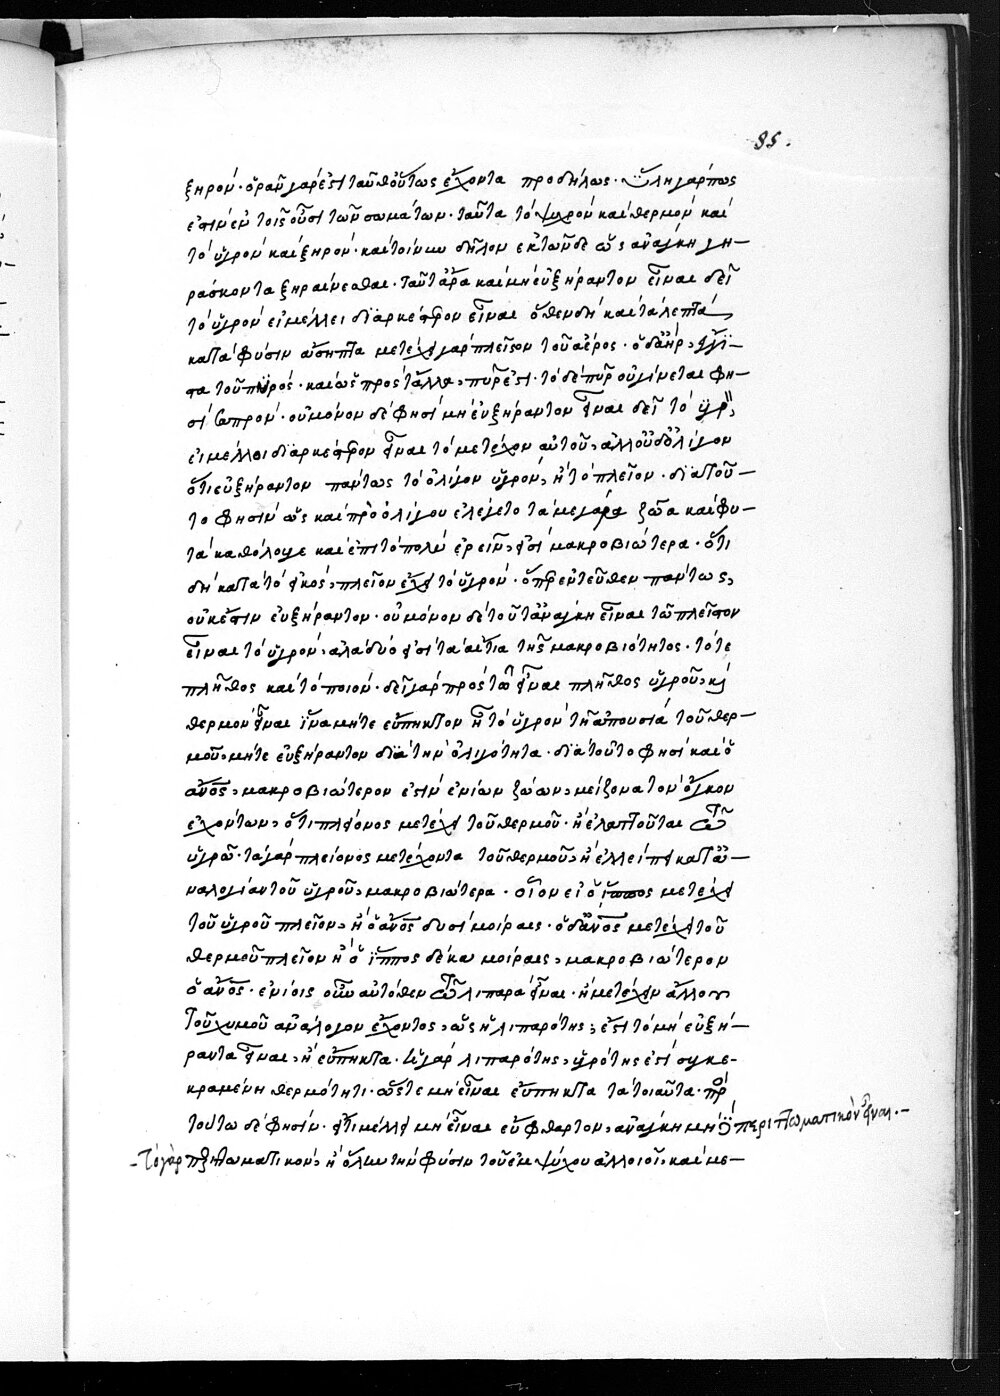 85.
ξηρόν· ὁρᾶν γάρ ἐστι ταῦθ' οὕτως ἔχοντα προδήλως· ὕλη γάρ πως
ἐστὶν ἐν τοῖς οὖσι τῶν σωμάτων· ταῦτα τὸ ψυχρὸν καὶ θερμὸν καὶ
τὸ ὑγρὸν καὶ ξηρόν· καὶ τοίνυν δῆλον ἐκ τῶνδε ὡς ἀνάγκη γη-
ράσκοντα ξηραίνεσθαι· ταῦτ' ἄρα καὶ μὴ εὐξήραντον εἶναι δεῖ
τὸ ὑγρὸν εἰ μέλλει διαρκέστερον εἶναι ὅθεν δὴ καὶ τὰ λεπτὰ
κατὰ φύσιν ἄσηπτα μετέχει γὰρ πλεῖστον τοῦ ἀέρος· ὁ δ' ἀὴρ, ἐγγύ-
τα τοῦ πυρός· καὶ ὡς πρὸς τἄλλα, πῦρ ἐστι· τὸ δὲ πῦρ οὐ γίνεται φη-
σὶ σαπρόν· οὐ μόνον δέ φησι μὴ εὐξήραντον εἶναι δεῖ τὸ ὑγρ,
εἰ μέλλοι διαρκέστερον εἶναι τὸ μετέχον αὐτοῦ, ἀλλ' οὐδ' ὀλίγον
ὅτι εὐξήραντον πάντως τὸ ὀλίγον ὑγρόν, ἢ τὸ πλεῖον· διὰ τοῦ-
το φησὶν ὡς καὶ πρὸ ὀλίγου ἐλέγετο τὰ μεγάλα ζῶα καὶ φυ-
τὰ καθόλου τε καὶ ἐπιτοπολὺ ἐρεῖν, εἰσὶ μακροβιώτερα· ὅτι
δὴ κατὰ τὸ εἰκός, πλεῖον ἔχει τὸ ὑγρόν· ὅπερ ἐντεῦθεν πάντως,
οὐκ ἔστιν εὐξήραντον· οὐ μόνον δὲ τοῦτ' ἀνάγκη εἶναι τῶ πλεῖστον
εἶναι τὸ ὑγρόν, ἀλλὰ δύο εἰσὶ τὰ αἴτια τῆς μακροβιότητος· τό τε
πλῆθος καὶ τὸ ποιόν· δεῖ γὰρ πρὸς τῶ εἶναι πλῆθος ὑγροῦ, καὶ
θερμὸν εἶναι ἵνα μήτε εὔπηκτον ᾖ τὸ ὑγρὸν τῇ ἀπουσίᾳ τοῦ θερ-
μοῦ, μήτε εὐξήραντον διὰ τὴν ὀλιγότητα· διὰ τοῦτό φησι καὶ ὁ
ἄνος, μακροβιώτερον ἐστὶν ἐνίων ζώων, μείζονα τὸν ὄγκον
ἐχόντων, ὅτι πλείονος μετέχει τοῦ θερμοῦ· ἢ ἐλαττοῦται τῶ
ὑγρῶ· τὰ γὰρ πλείονος μετέχοντα τοῦ θερμοῦ, ἢ ἐλλείπει κατ' ἀ-
ναλογίαν τοῦ ὑγροῦ, μακροβιώτερα· οἷον εἰ ὁ ἵππος μετέχει
τοῦ ὑγροῦ πλεῖον, ἢ ὁ ἄνος δυσὶ μοίραις· ὁ δ' ἄνος μετέχει τοῦ
θερμοῦ πλεῖον ἢ ὁ ἵππος δέκα μοίραις, μακροβιώτερον
ὁ ἄνος· ἐνίοις οὖν αὐτόθεν τῶ λιπαρὰ εἶναι· ἢ μετέχειν ἄλλου
του χυμοῦ ἀνάλογον ἔχοντος, ὡς ἡ λιπαρότης, ἔστι τὸ μὴ εὐξή-
ραντα εἶναι, ἢ εὔπηκτα· ἡ γὰρ λιπαρότης, ὑγρότης ἐστὶ συγκε-
κραμένη θερμότητι· ὥστε μὴ εἶναι εὔπηκτα τὰ τοιαῦτα· πρὸ
τούτω δέ φησιν· εἴ τι μέλλει μὴ εἶναι εὔφθαρτον, ἀνάγκη μὴ περιττωματικὸν εἶναι.-
-τὸ γὰρ περιττωματικόν, ἢ ὅλην τὴν φύσιν τοῦ ἐμψύχου ἀλλοιοῖ, καὶ με-